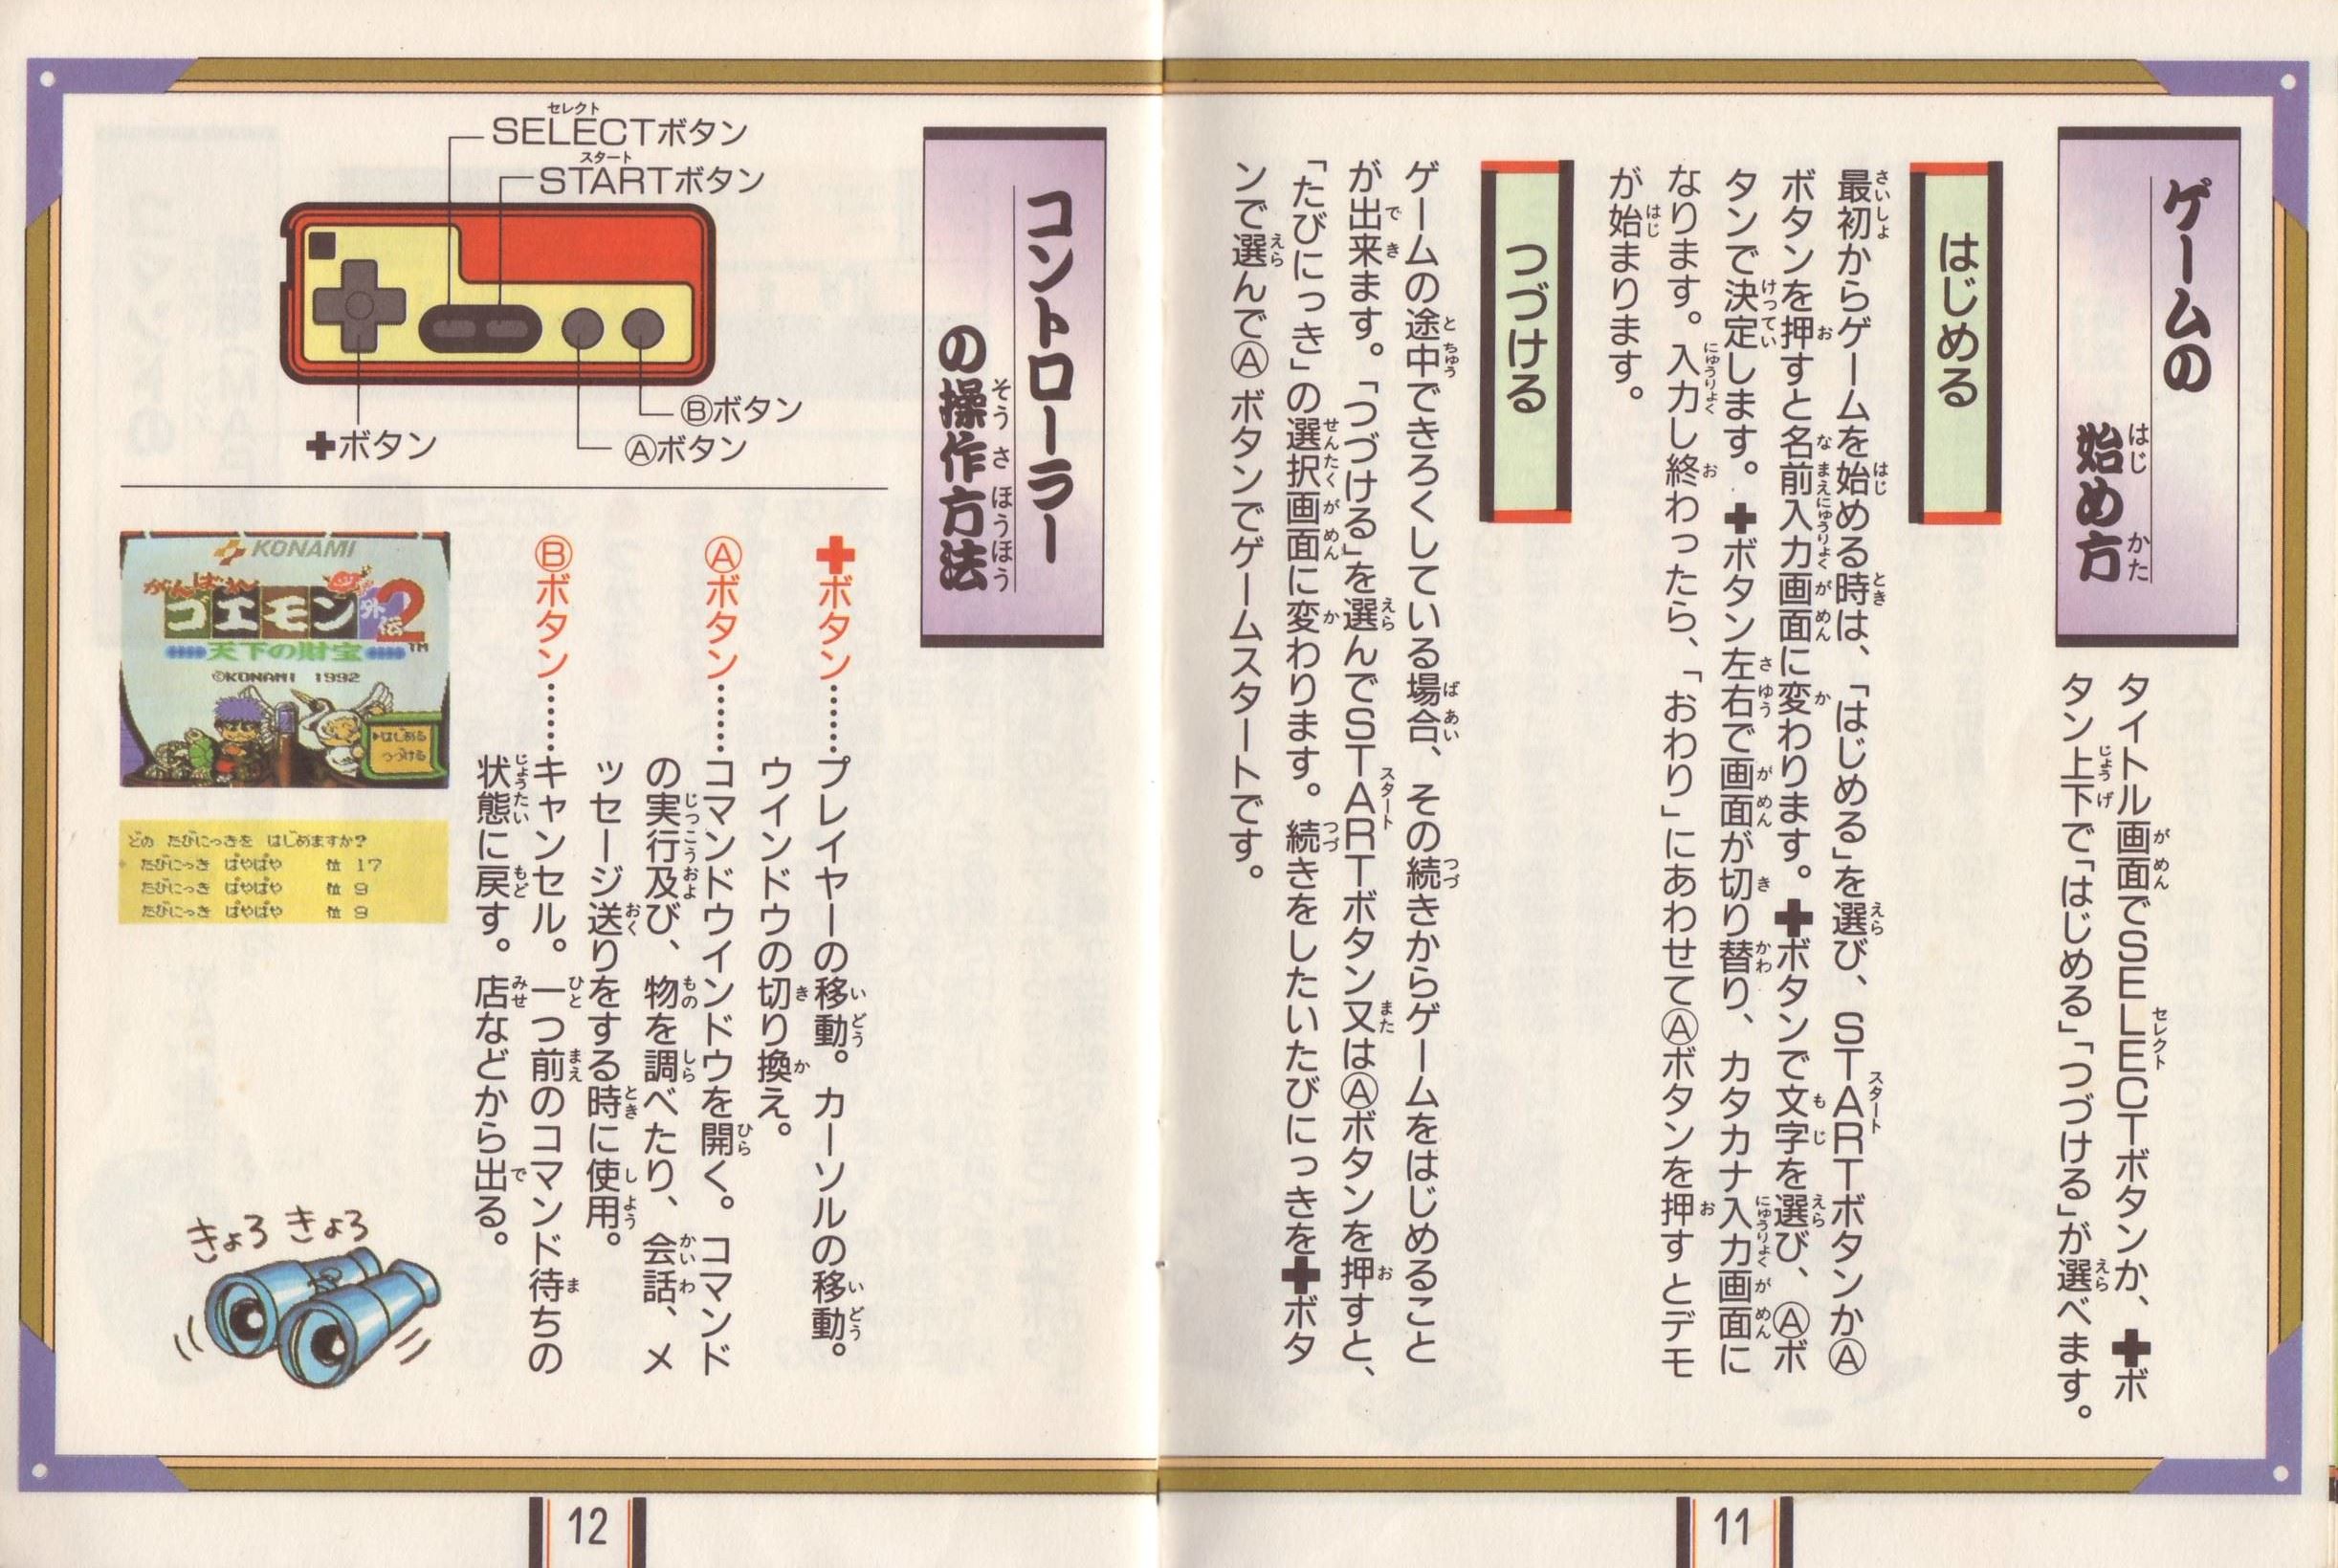 ゲームの
始め方
タイトル画面でSELECTボタンか、✚ボ
タン上下で「はじめる」「つづける」が選べます。
はじめる
最初からゲームを始める時は、「はじめる」を選び、STARTボタンかⒶ
ボタンを押すと名前入力画面に変わります。✚ボタンで文字を選び、Ⓐボ
タンで決定します。✚ボタン左右で画面が切り替り、カタカナ入力画面に
なります。入力し終わったら、「おわり」にあわせてⒶボタンを押すとデモ
が始まります。
つづける
ゲームの途中できろくしている場合、その続きからゲームをはじめること
が出来ます。「つづける」を選んでSTARTボタン又はⒶボタンを押すと、
「たびにっき」の選択画面に変わります。続きをしたいたびにっきを✚ボタ
ンで選んでⒶボタンでゲームスタートです。
11
コントローラー
の操作方法
SELECTボタン
STARTボタン
Ⓑボタン
Ⓐボタン
✚ボタン
✚ボタン……プレイヤーの移動。カーソルの移動。
ウインドウの切り換え。
Ⓐボタン……コマンドウインドウを開く。コマンド
の実行及び、物を調べたり、会話、メ
ッセージ送りをする時に使用。
Ⓑボタン……キャンセル。一つ前のコマンド待ちの
状態に戻す。店などから出る。
KONAMI
がんばれ
ゴエモン外伝2
TM
天下の財宝
©KONAMI 1992
はじめる
つづける
どの たびにっきを はじめますか?
たびにっき ぱやぱや 位 17
たびにっき ぱやぱや 位 9
たびにっき ぱやぱや 位 9
きょろ きょろ
12